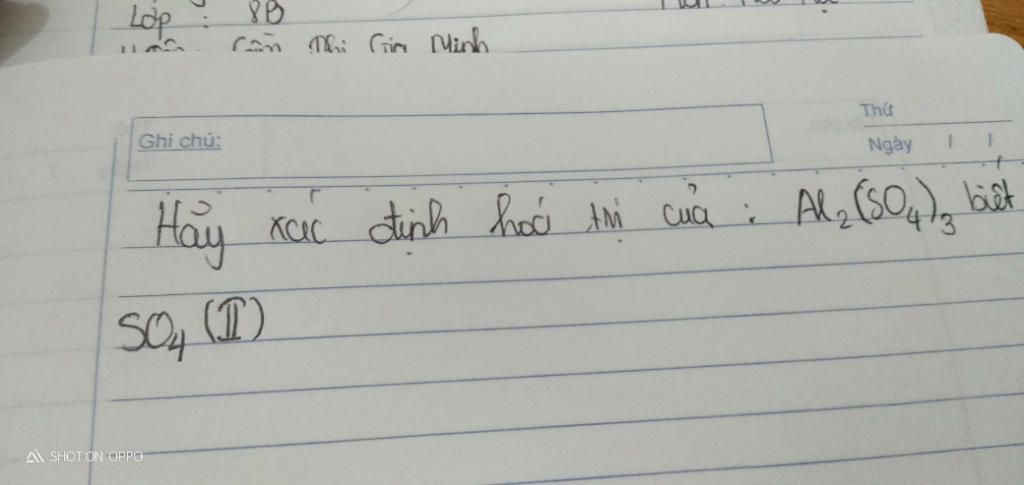 Lớp : 8B
Cấn Thị Gia Minh
Thứ
Ghi chú:
Ngày / /
Hãy xác định hoá trị của : Al₂(SO₄)₃ biết
SO₄ (II)
SHOT ON OPPO